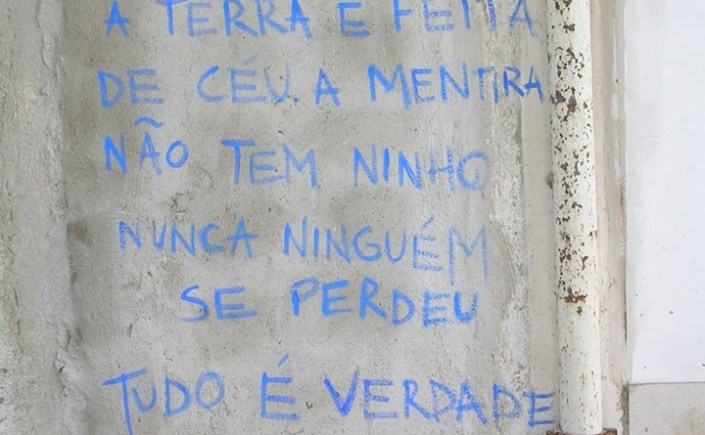 A TERRA E FEITA
DE CÉU. A MENTIRA
NÃO TEM NINHO
NUNCA NINGUÉM
SE PERDEU
TUDO É VERDADE